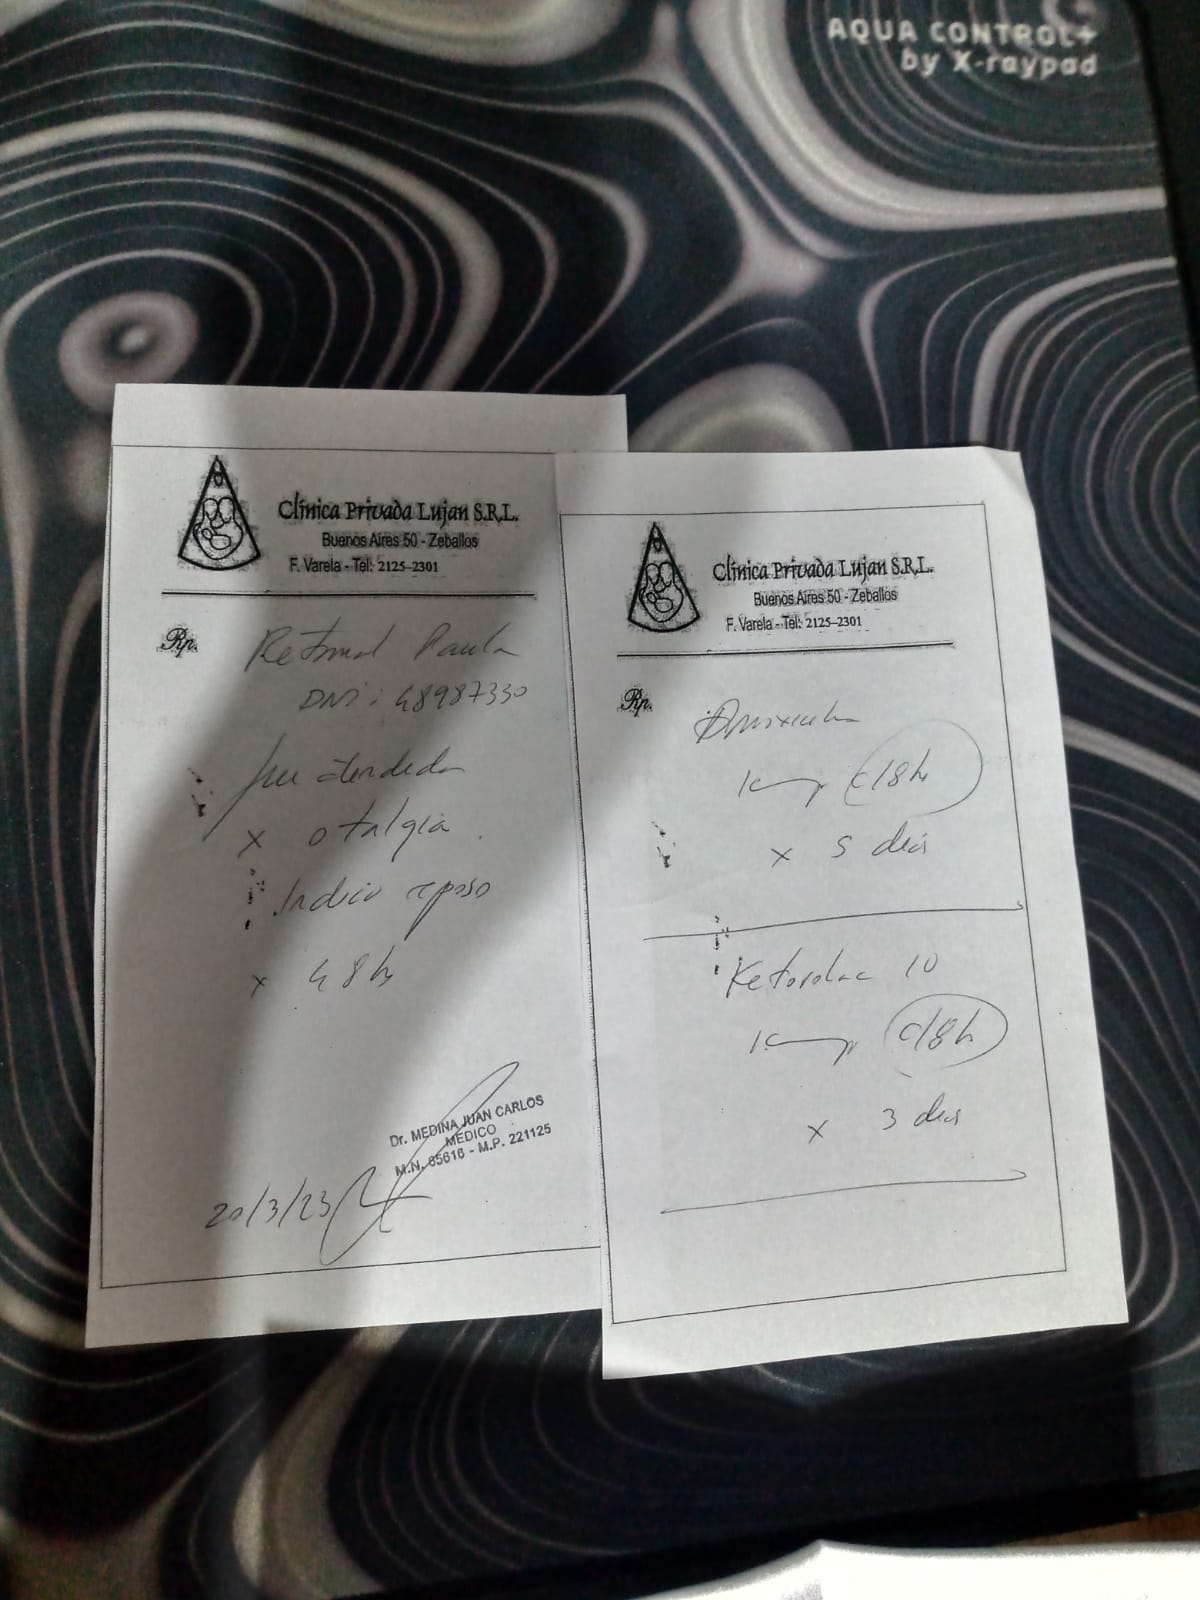 AQUA CONTROL+
by X-raypad
Clínica Privada Lujan S.R.L.
Buenos Aires 50 - Zeballos
F. Varela - Tel: 2125-2301
Rp. Paula
DNI: 48987330
fue atendida
x otalgia.
Indico reposo
x 48 hs
Dr. MEDINA JUAN CARLOS
MEDICO
M.N. 65616 - M.P. 221125
20/3/23
Clínica Privada Lujan S.R.L.
Buenos Aires 50 - Zeballos
F. Varela - Tel: 2125-2301
Rp.
c/8 hs
x 5 dias
Ketorolac 10
c/8 h
x 3 dias